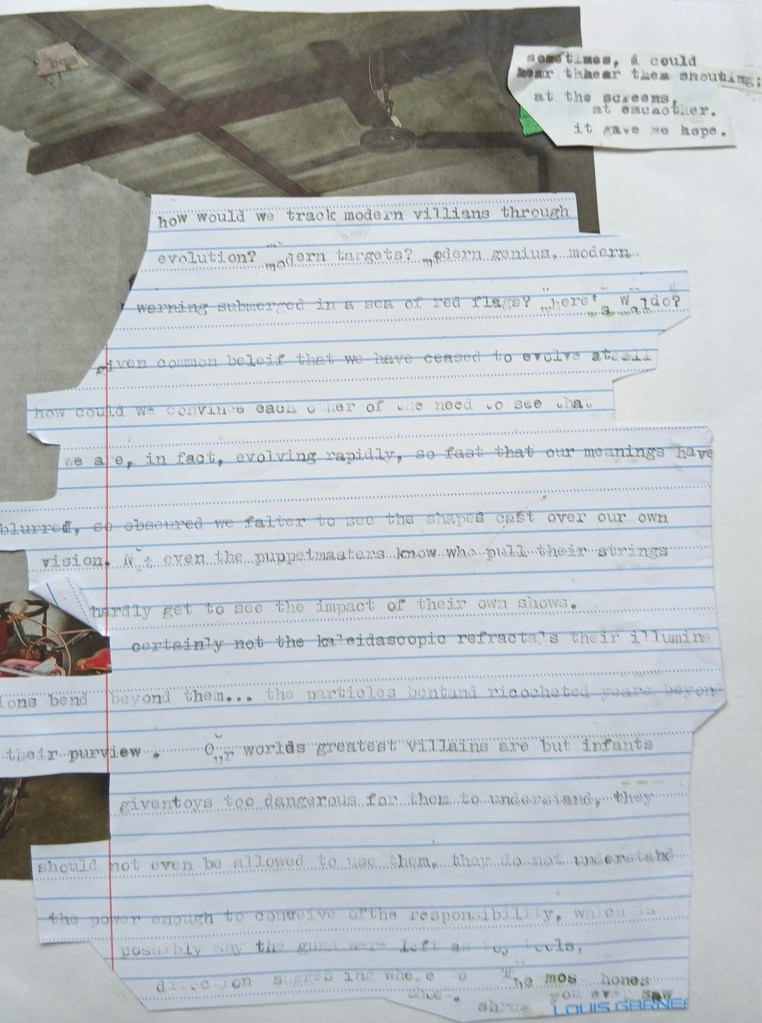 sometimes, i could
hear thhear them shouting;
at the screens,
at eacnother.
it gave me hope.
how would we track modern villians through
evolution? modern targets? modern genius, modern
warning submerged in a sea of red flags? where's Waldo?
given common beleif that we have ceased to evolve atall
how could we convince each other of the need to see that
we are, in fact, evolving rapidly, so fast that our meanings have
blurred, so obscured we falter to see the shapes cast over our own
vision. Not even the puppetmasters know who pull their strings
hardly get to see the impact of their own shows.
certainly not the kaleidascopic refractals their illumina
ions bend beyond them... the particles bentand ricocheted years beyon
their purview. Our worlds greatest villains are but infants
giventoys too dangerous for them to understand, they
should not even be allowed to use them, they do not understand
the power enough to conceive ofthe responsibility, which is
possibly why the guns were left as toy
direction suggesting where to The mos hones
you ever saw
LOUIS GARNIE